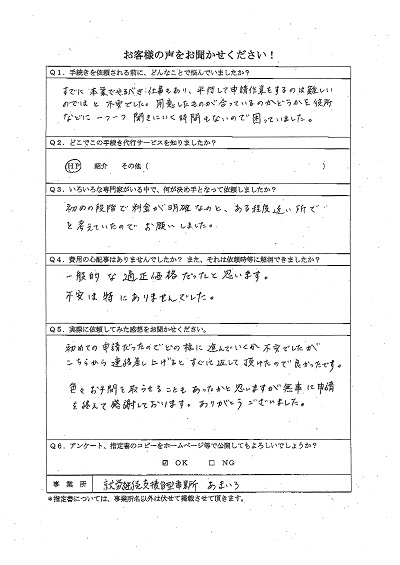 お客様の声をお聞かせください！
Q1．手続きを依頼される前に、どんなことで悩んでいましたか？
すでに本業でやるべき仕事もあり、平行して申請作業をするのは難しい
のではと不安でした。用意したものが合っているのかどうかを役所
などに一つ一つ聞きにいく時間もないので困っていました。
Q2．どこでこの手続き代行サービスを知りましたか？
HP 紹介 その他（ ）
Q3．いろいろな専門家がいる中で、何が決め手となって依頼しましたか？
初めの段階で料金が明確なのと、ある程度近い所で
と考えていたのでお願いしました。
Q4．費用の心配事はありませんでしたか？また、それは依頼時等に解消できましたか？
一般的な適正価格だったと思います。
不安は特にありませんでした。
Q5．実際に依頼してみた感想をお聞かせください。
初めての申請だったのでどの様に進んでいくか不安でしたが
こちらから連絡差し上げるとすぐに返して頂けたので良かったです。
色々お手間を取らせることもあったかと思いますが無事に申請
を終えて感謝しております。ありがとうございました。
Q6．アンケート、指定書のコピーをホームページ等で公開してもよろしいでしょうか？
☑ OK □ NG
事業所 就労継続支援B型事業所 あまいろ
＊指定書については、事業所名以外は伏せて掲載させて頂きます。